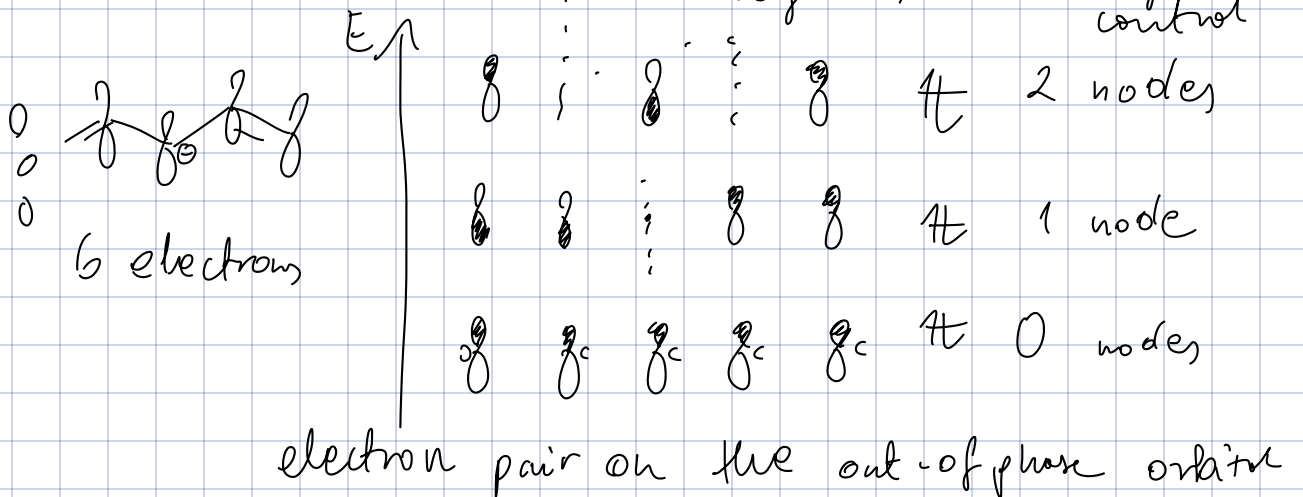 control
E
2 nodes
1 node
6 electrons
0 nodes
electron pair on the out-of phase orbital